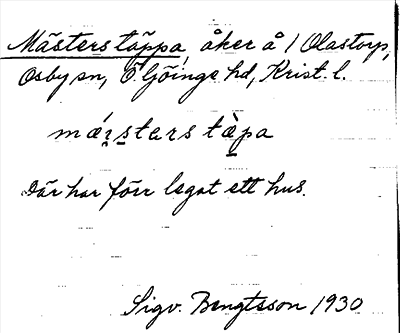 Mästerstäppa, åker å 1 Olastorp,
Osby sn, Ö. Göinge hd, Krist. l.
mǽr̥s̠ters tæ̀p̠a
Där har förr legat ett hus.
Sigv. Bengtsson 1930